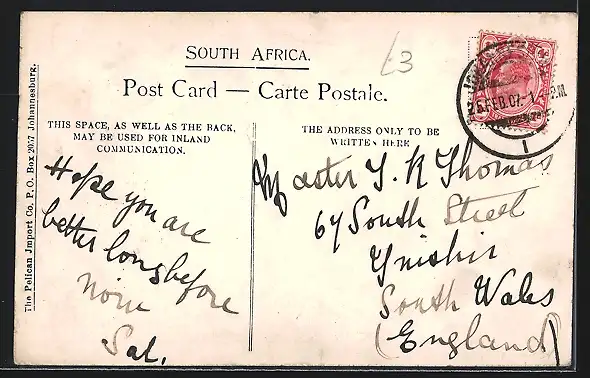 £3
SOUTH AFRICA.
Post Card — Carte Postale.
THIS SPACE, AS WELL AS THE BACK,
MAY BE USED FOR INLAND
COMMUNICATION.
THE ADDRESS ONLY TO BE
WRITTEN HERE
Hope you are
better long before
now
Sal.
Master T. R Thomas
67 South Street
Ynishir
South Wales
(England)
The Pelican Import Co. P. O. Box 2057 Johannesburg.
25 FEB. 07
PM
1